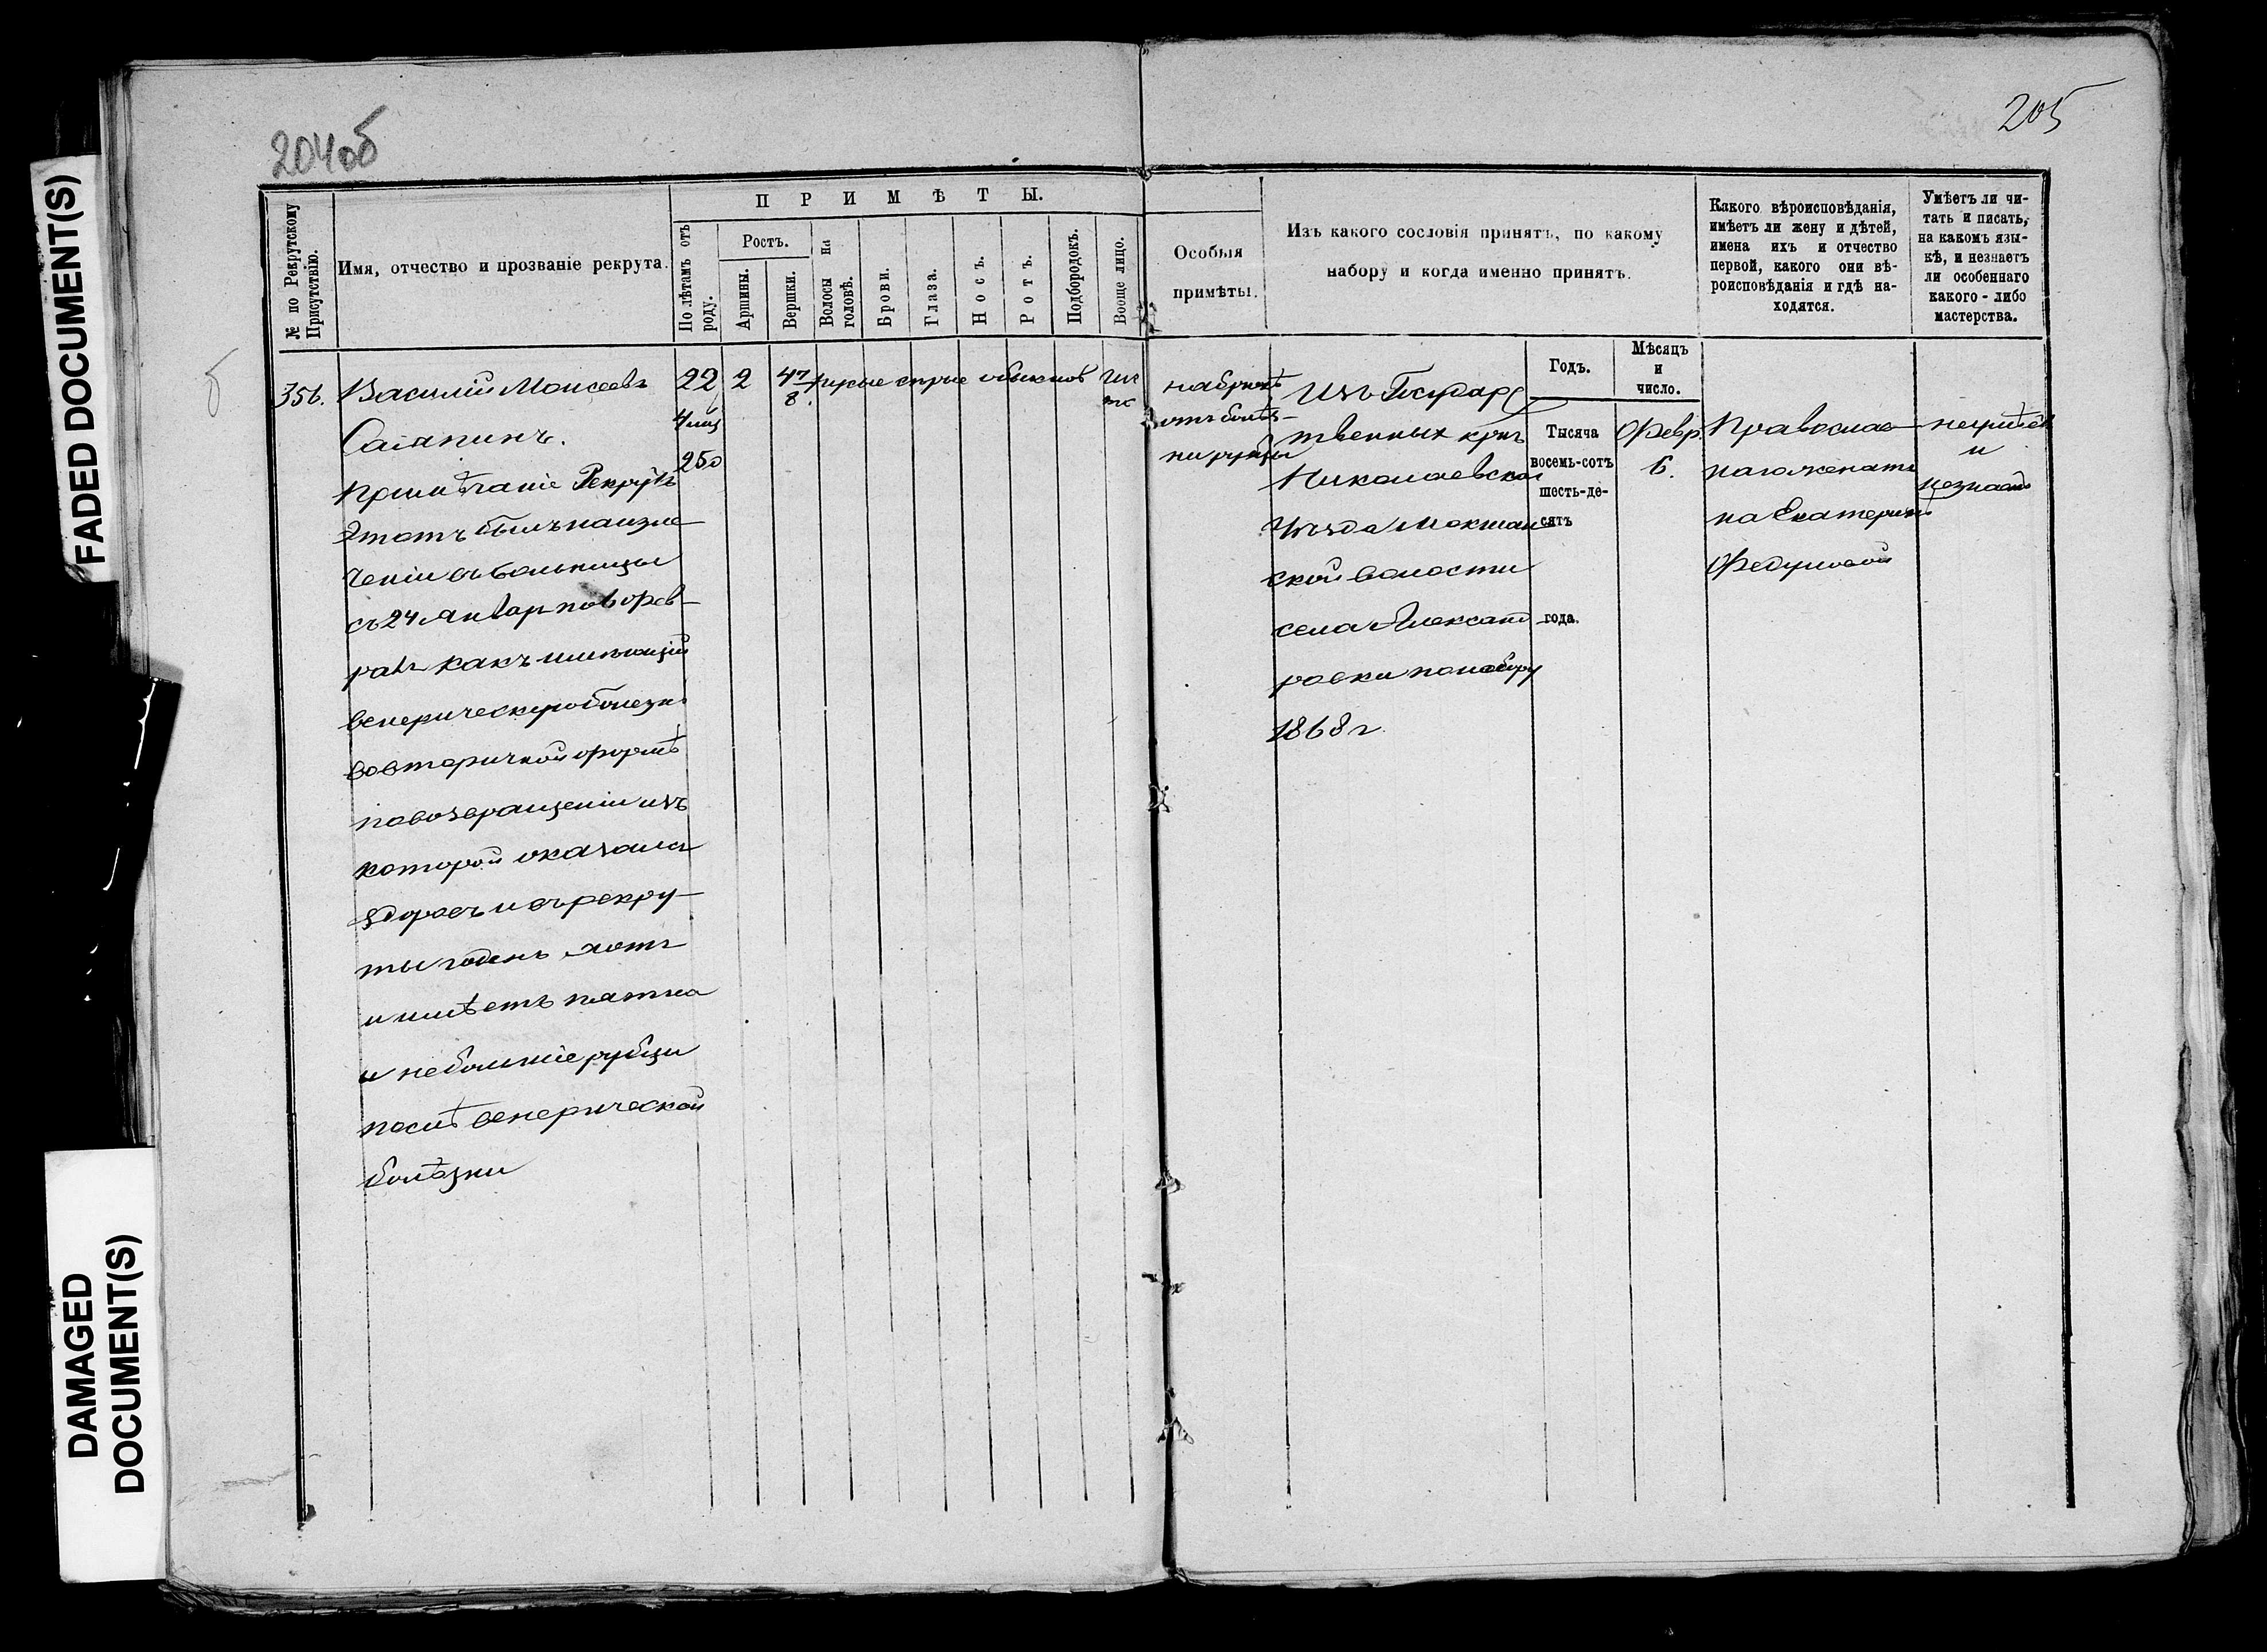 FADED DOCUMENT(S)
DAMAGED
DOCUMENT(S)
204об
205
№ по Рекрутскому
Присутствію.
Имя, отчество и прозваніе рекрута.
ПРИМѢТЫ.
По лѣтамъ отъ
роду.
Ростъ.
Аршины.
Вершки.
Волосы на
головѣ.
Брови.
Глаза.
Носъ.
Ротъ.
Подбородокъ.
Вообще лицо.
Особыя
примѣты.
Изъ какого сословія принятъ, по какому
набору и когда именно принятъ.
Какого вѣроисповѣданія,
имѣетъ ли жену и дѣтей,
имена ихъ и отчество
первой, какого они вѣ-
роисповѣданія и гдѣ на-
ходятся.
Умѣетъ ли чи-
тать и писать,
на какомъ язы-
кѣ, и незнаетъ
ли особеннаго
какого-либо
мастерства.
356.
Василій Моисеевъ
Сапинъ.
Примѣчаніе Рекрутъ
Этотъ былъ на изле-
ченіи въ больницы
съ 24 Январ по 6 Фев-
раля какъ имѣющій
венерическую болезнь
во вторичной формѣ
по возвращеніи изъ
которой оказался
здоровъ и въ рекру-
ты годенъ хотя
и имѣетъ пятна
и небольшіе рубцы
послѣ венерической
болѣзни
22
4 мец
25 д
2
4 7/8
русые
сѣрые
обыкнов
чис
тое
на брюхѣ
отъ болѣз-
ни рубцы
Изъ Государс
твенныхъ крнъ
Николаевскаго
Уѣзда Мокшан
ской волости
села Александ
ровки по набору
1868 г.
Годъ.
Тысяча
восемь-сотъ
шесть-де-
сятъ
года.
Мѣсяцъ
и
число.
Февр.
6.
Православ-
наго женатъ
на Екатеринѣ
Федуловой
неумѣетъ
и
незнаетъ